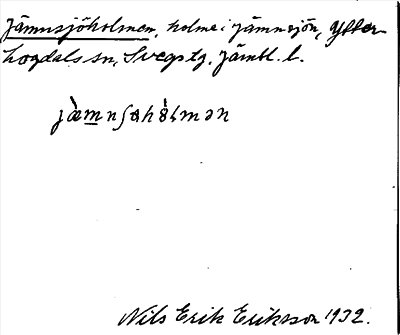 Jämnsjöholmen, holme i Jämnsjön, Ytter-
hogdals sn, Svegs tg, Jämtl. l.
Nils Erik Eriksson 1932.